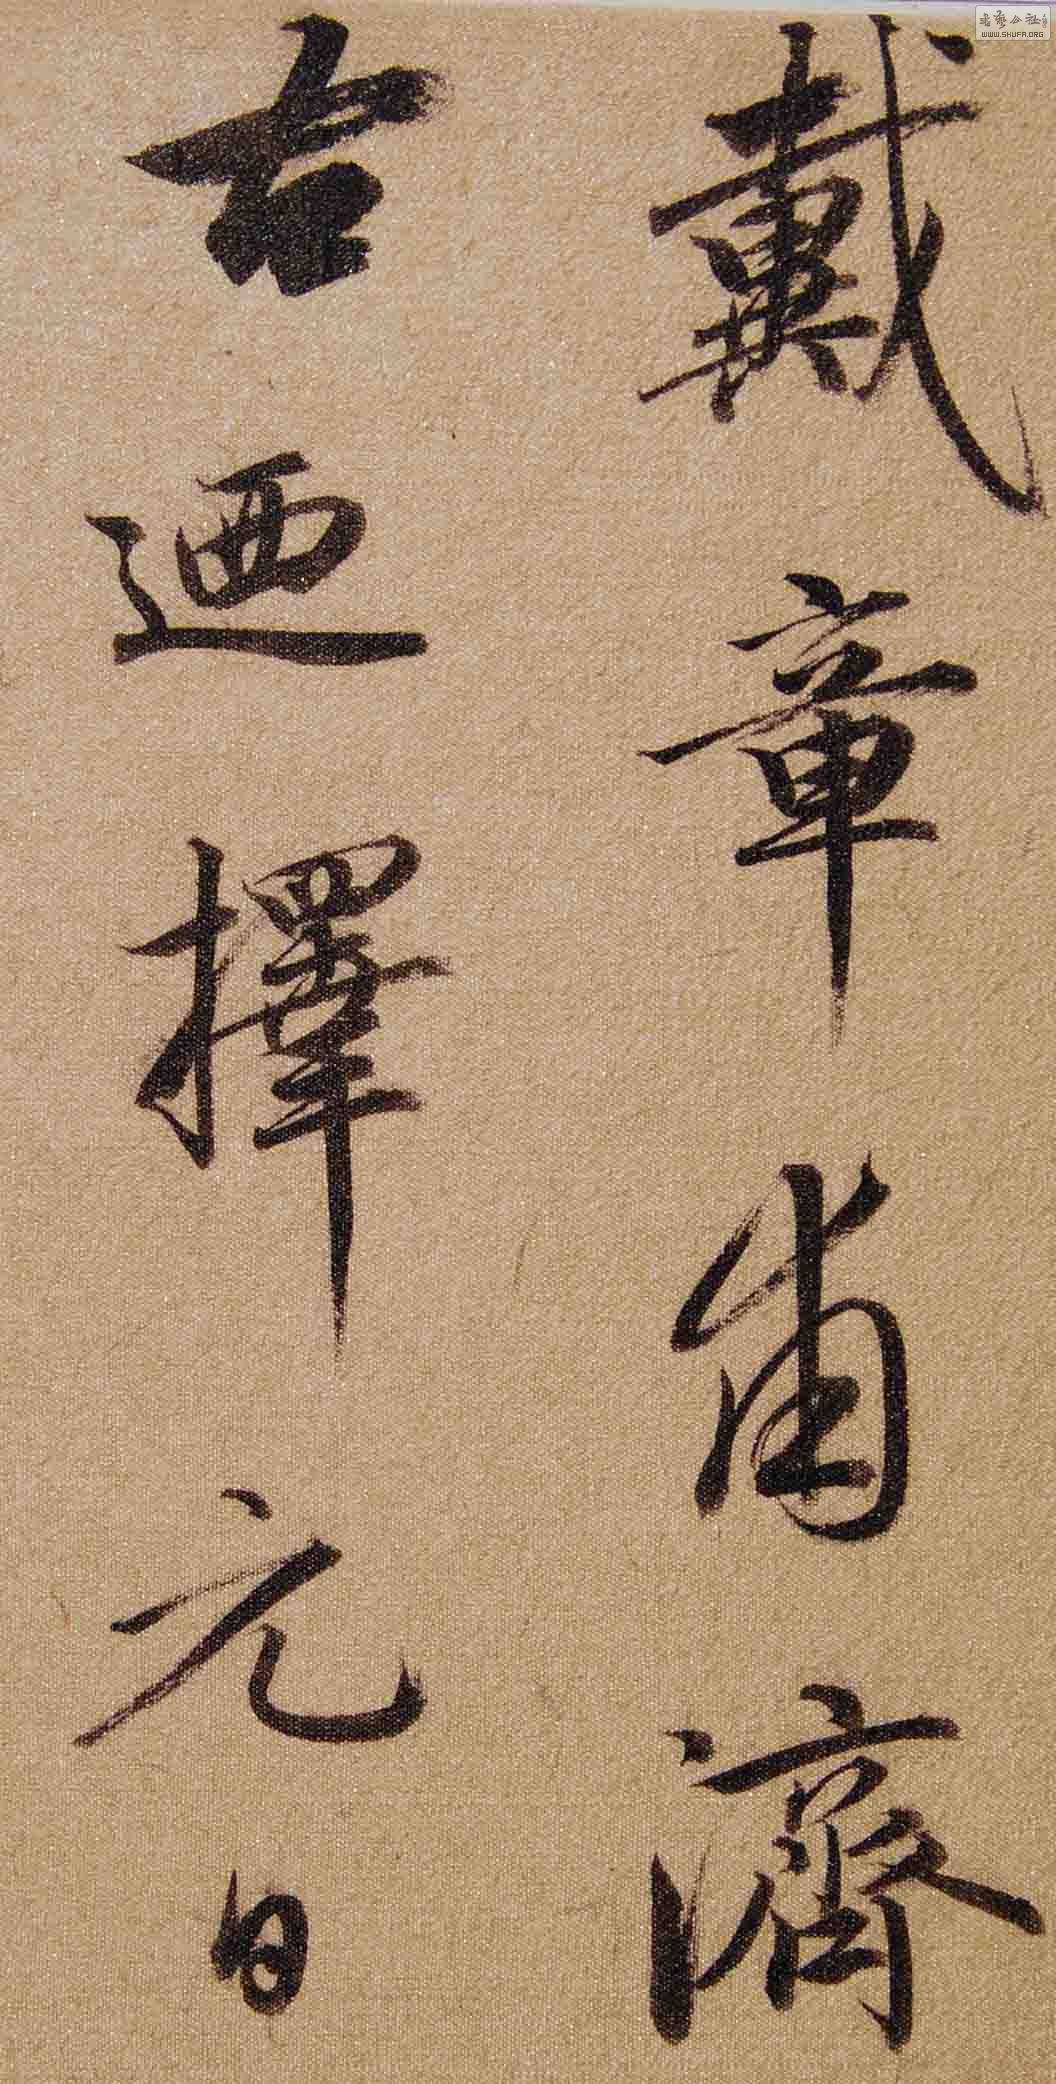 戴章甫濟
右迺擇元日
WWW.SHUFA.ORG